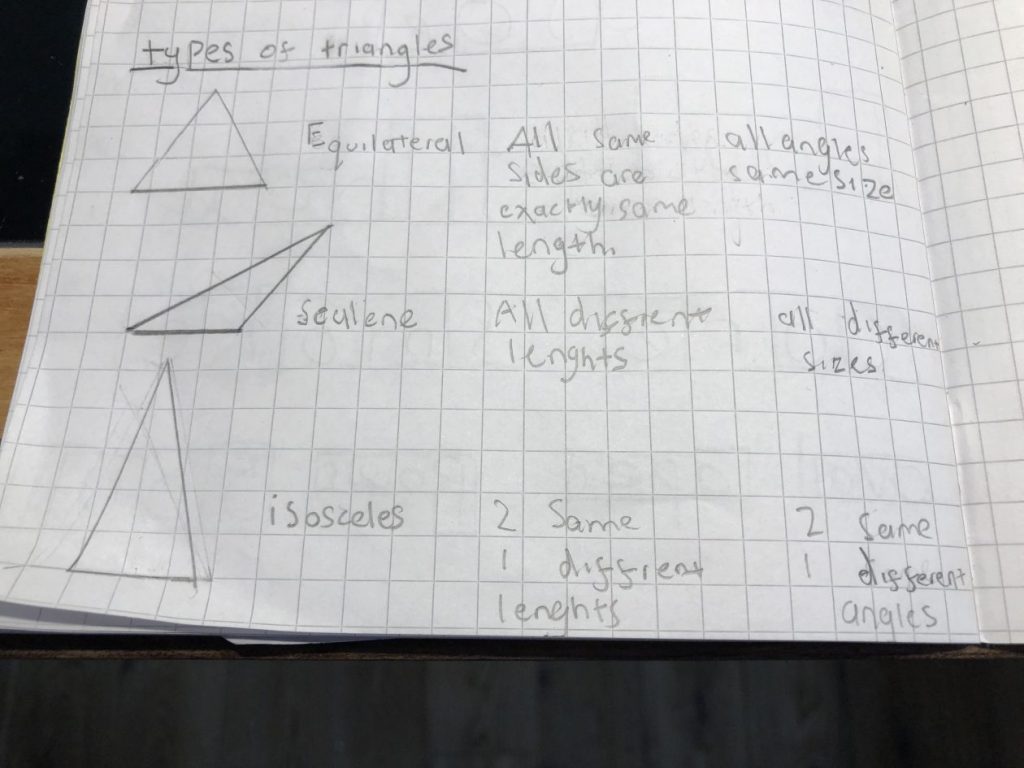 types of triangles
Equilateral All same all angles
sides are same size
exactly same
length.
Scalene All diffrient all different
lenghts sizes
isosceles 2 Same 2 same
1 diffrient 1 different
lenghts angles